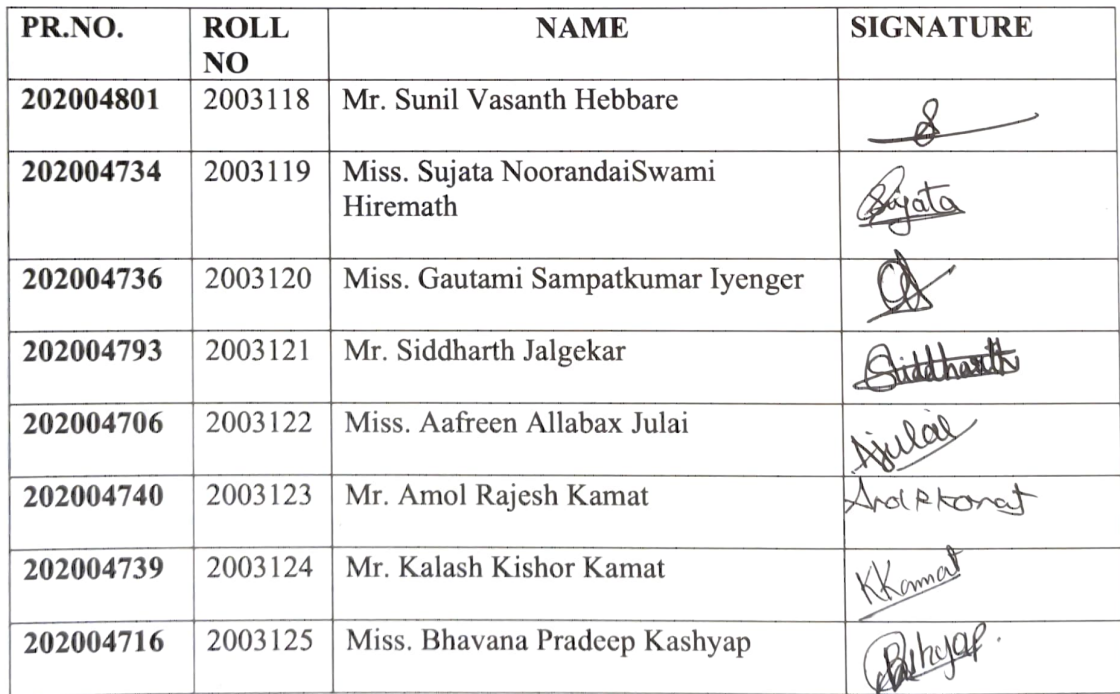 PR.NO. ROLL NO NAME SIGNATURE
202004801 2003118 Mr. Sunil Vasanth Hebbare S
202004734 2003119 Miss. Sujata NoorandaiSwami Hiremath Sujata
202004736 2003120 Miss. Gautami Sampatkumar Iyenger
202004793 2003121 Mr. Siddharth Jalgekar Siddharth
202004706 2003122 Miss. Aafreen Allabax Julai AJulai
202004740 2003123 Mr. Amol Rajesh Kamat Amol R Kamat
202004739 2003124 Mr. Kalash Kishor Kamat KKamat
202004716 2003125 Miss. Bhavana Pradeep Kashyap